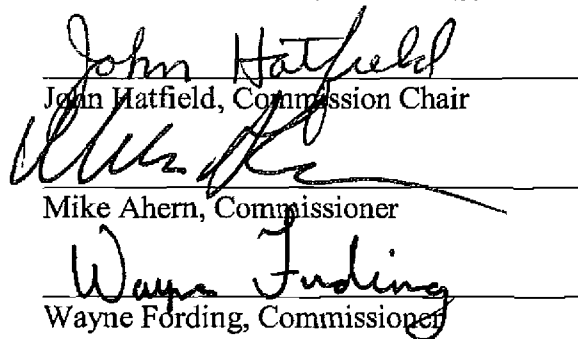 John Hatfield
John Hatfield, Commission Chair
Mike Ahern, Commissioner
Wayne Fording
Wayne Fording, Commissioner